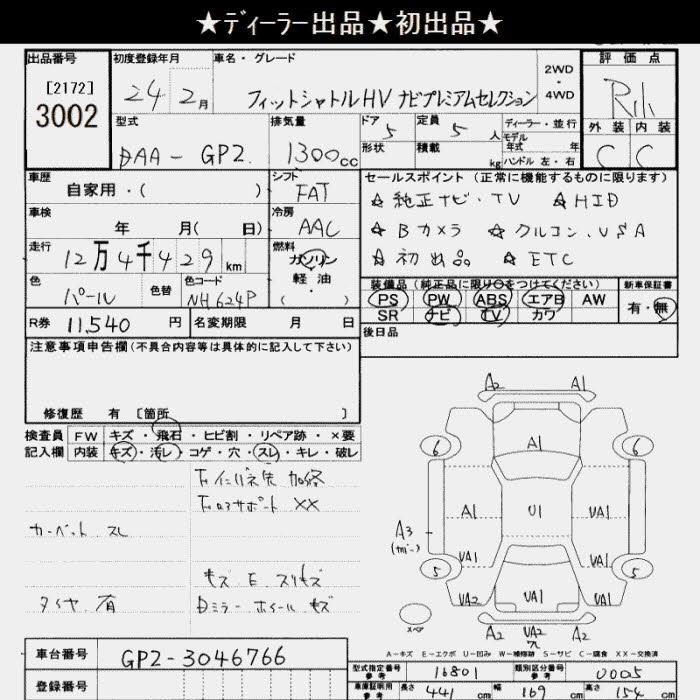 ★ディーラー出品★初出品★
出品番号 初度登録年月 車名・グレード 評価点
[2172]
3002
24 2月 フィットシャトルHV ナビプレミアムセレクション
2WD
・
4WD
外装 内装
C C
型式 排気量 ドア 定員 ディーラー・並行
DAA-GP2 1300cc 5 5人
モデル年式 年
形状 積載 kg ハンドル 左・右
車歴 シフト セールスポイント(正常に機能するものに限ります)
自家用・( ) FAT
☆純正ナビ・TV ☆HID
車検 冷房
年 月( 日) AAC
☆Bカメラ ☆クルコン、VSA
☆初出品 ☆ETC
走行 燃料
12万4千429km ガソリン
軽油
( ・ )
色 色替 色コード
パール NH624P
装備品(純正品に限り○をつけてください) 新車保証書
PS PW ABS エアB AW 有・無
SR ナビ TV カワ
R券 11,540 円 名変期限 月 日
後日品
注意事項申告欄(不具合内容等は具体的に記入して下さい)
修復歴 有 [箇所 ]
検査員 FW キズ・飛石・ヒビ割・リペア跡・×要
記入欄 内装 キズ・汚レ・コゲ・穴・スレ・キレ・破レ
XX
カーペット スレ
キズ E スリキズ
タイヤ 有 Dミラー ホイール キズ
A2 A1
6 A1 6
A1 U1 UA1
A3
UA1 UA1
5 5
UA2 UA1 UA1
スペア
A2 UA2 A2
A-キズ E-エクボ U-凹み W-補修跡 S-サビ C-腐食 XX-交換済
車台番号 GP2-3046766
登録番号
型式指定番号 参考 16801 類別区分番号 参考 0005
車庫証明用 参考 長さ 441 cm 幅 169 cm 高さ 154 cm